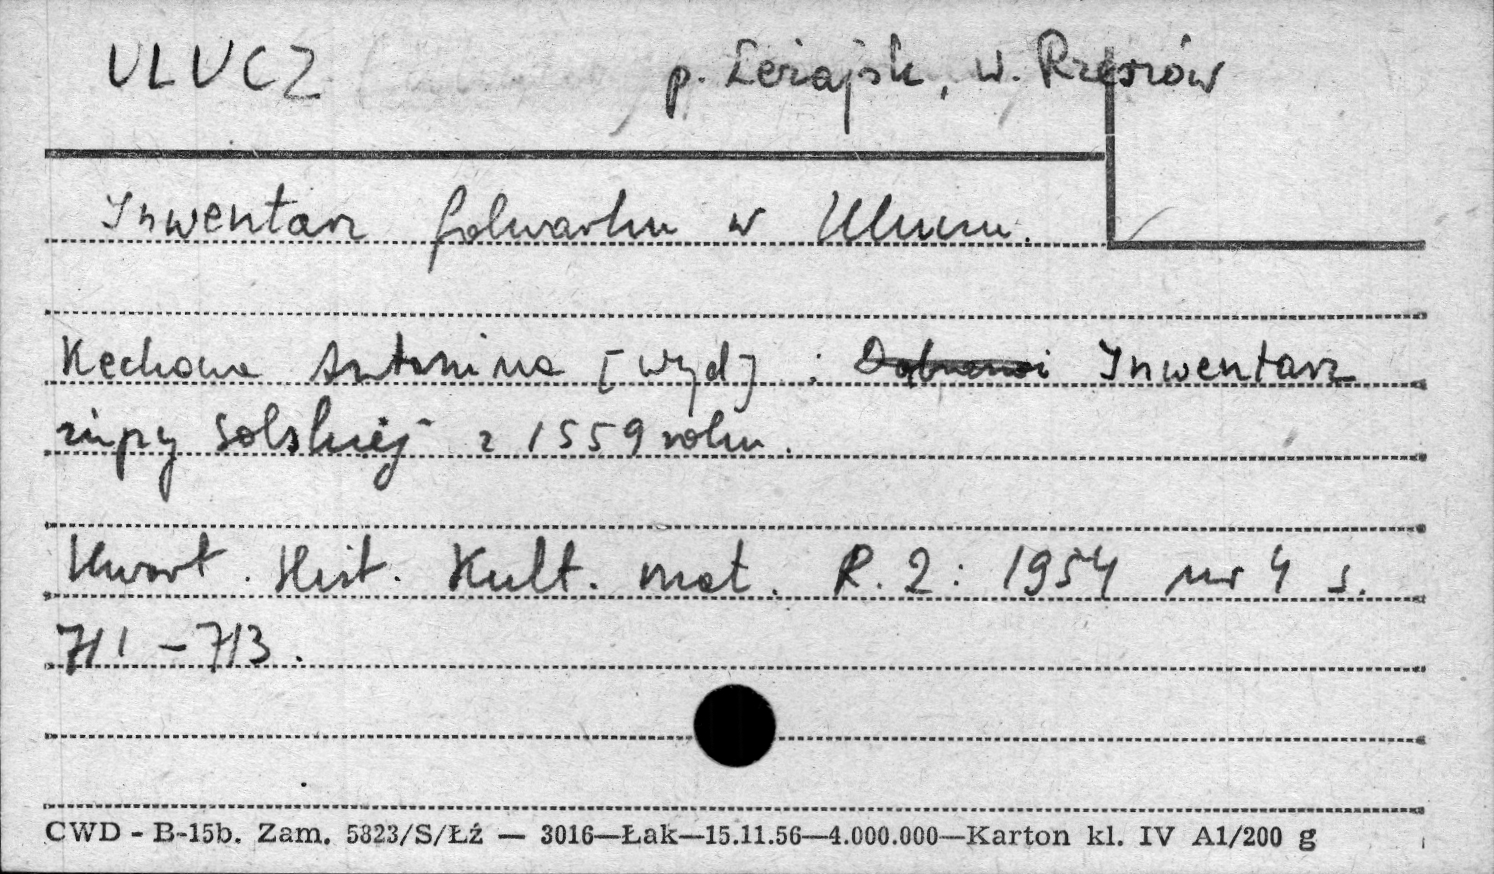 ULUCZ p. Leżajsk, w. Rzeszów
Inwentarz folwarku w Uluczu.
Keckowa Antonina [wyd] : Inwentarz
żupy solskiej z 1559 roku.
Kwart. Hist. Kult. mat. R. 2: 1954 nr 4 s.
711 - 713.
CWD - B-15b. Zam. 5823/S/Łź — 3016—Łak—15.11.56—4.000.000—Karton kl. IV A1/200 g